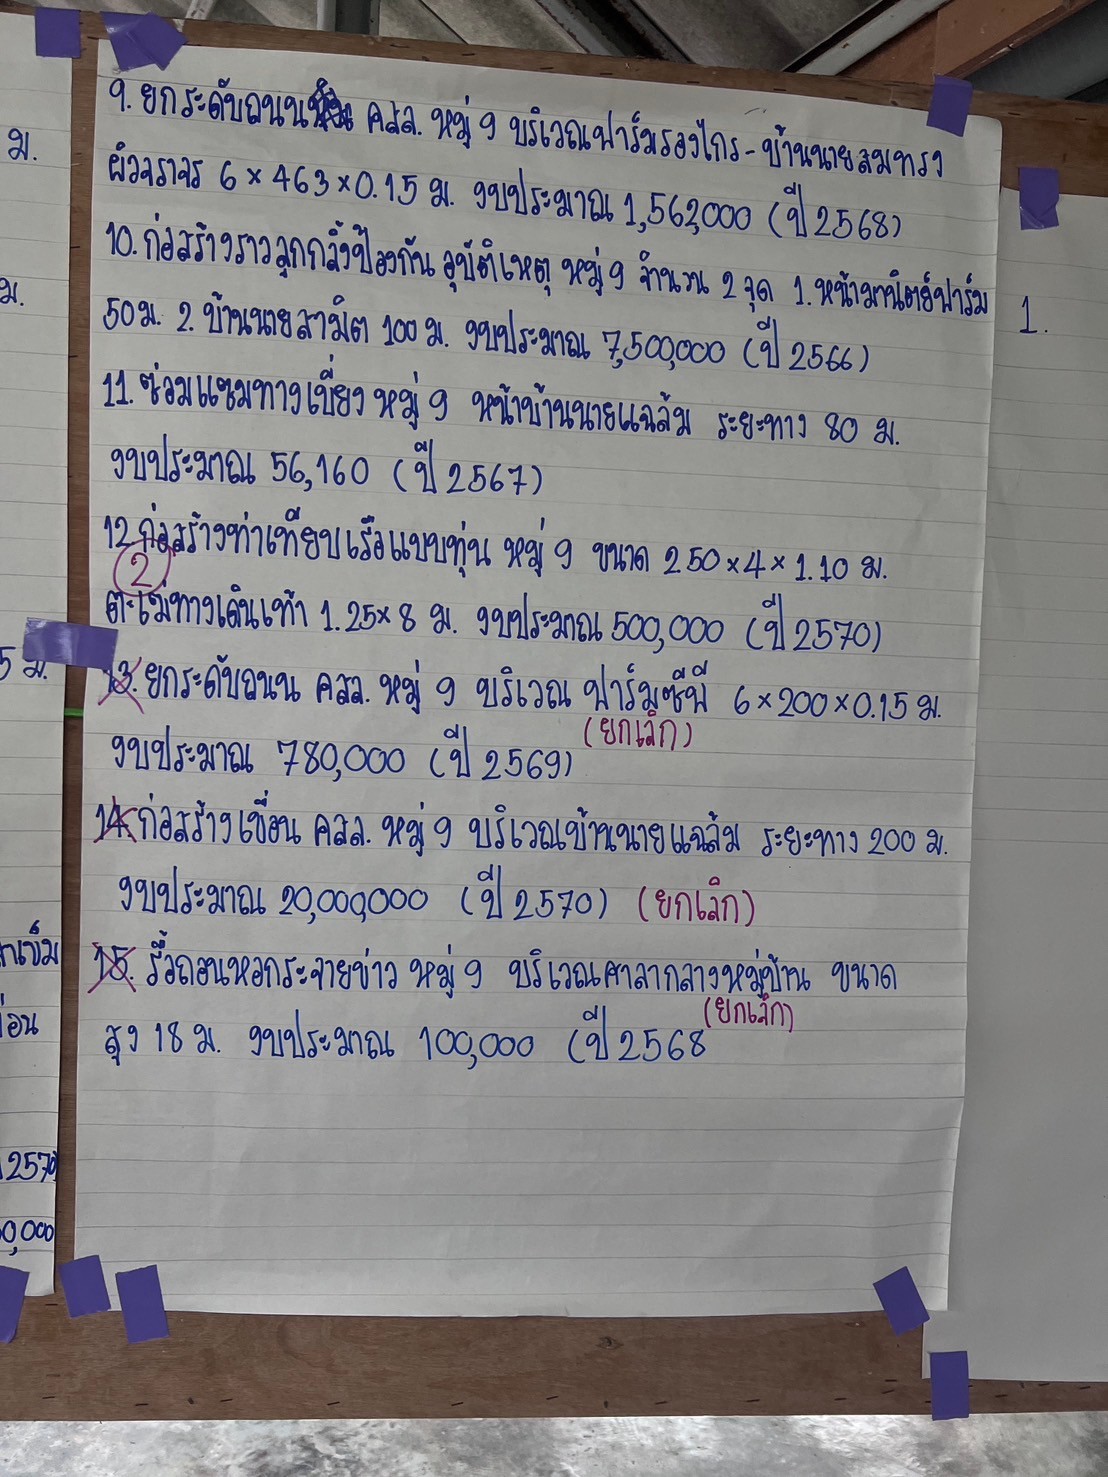 9. ยกระดับถนน คสล. หมู่ 9 บริเวณฟาร์มรองไกร - บ้านนายสมทรง
ผิวจราจร 6 × 463 × 0.15 ม. งบประมาณ 1,562,000 (ปี 2568)
10. ก่อสร้างราวลูกกลิ้งป้องกัน อุบัติเหตุ หมู่ 9 จำนวน 2 จุด 1. หน้ามานิตย์ฟาร์ม
50 ม. 2. บ้านนายสามิต 100 ม. งบประมาณ 7,500,000 (ปี 2566)
11. ซ่อมแซมทางเบี่ยง หมู่ 9 หน้าบ้านนายแฉล้ม ระยะทาง 80 ม.
งบประมาณ 56,160 (ปี 2567)
12. ก่อสร้างท่าเทียบเรือแบบทุ่น หมู่ 9 ขนาด 2.50 × 4 × 1.10 ม.
2
ทางเดินเท้า 1.25 × 8 ม. งบประมาณ 500,000 (ปี 2570)
13. ยกระดับถนน คสล. หมู่ 9 บริเวณ ฟาร์มซีพี 6 × 200 × 0.15 ม.
(ยกเลิก)
งบประมาณ 780,000 (ปี 2569)
14. ก่อสร้างเขื่อน คสล. หมู่ 9 บริเวณบ้านนายแฉล้ม ระยะทาง 200 ม.
งบประมาณ 20,000,000 (ปี 2570) (ยกเลิก)
15. รื้อถอนหอกระจายข่าว หมู่ 9 บริเวณศาลากลางหมู่บ้าน ขนาด
(ยกเลิก)
สูง 18 ม. งบประมาณ 100,000 (ปี 2568
ม.
ม.
5 ม.
2570
0,000
1.